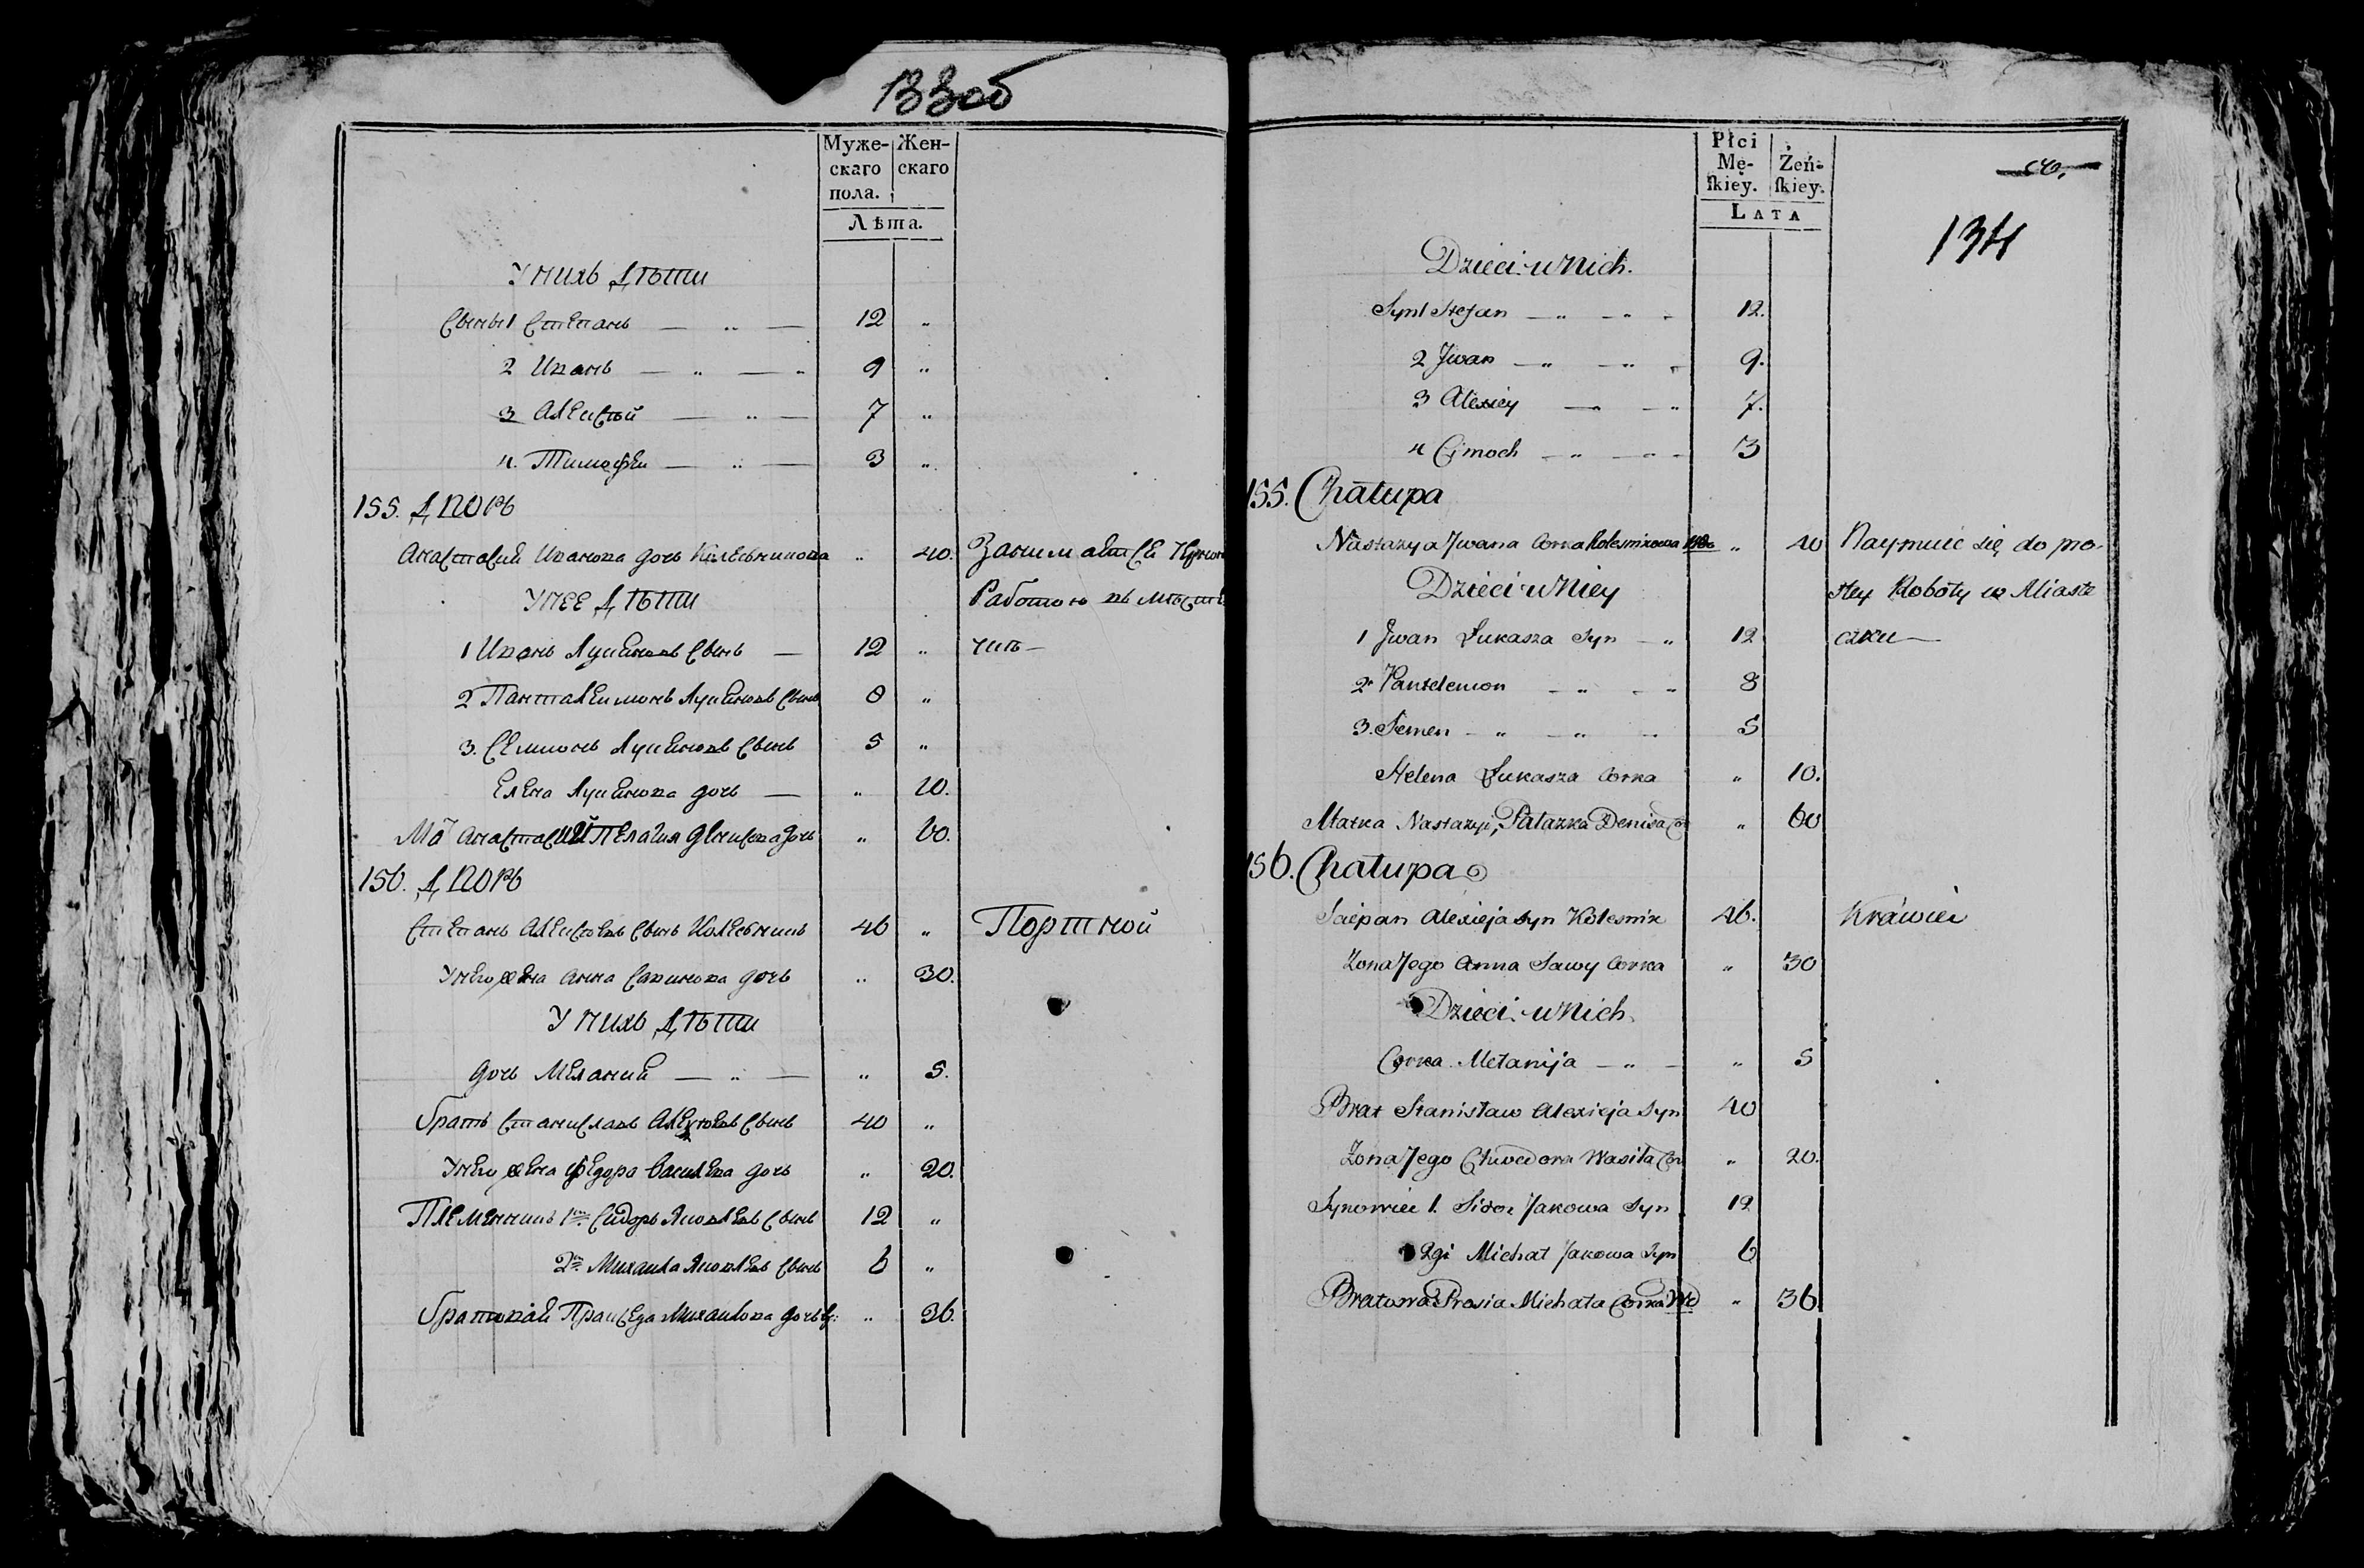 133об
Муже- Жен-
скаго скаго
пола.
Лѣта.
У нихъ Дѣти
Сынъ 1 Степанъ — „ — 12 „
2 Иванъ — „ — „ 9 „
3 Алексѣй — „ — 7 „
4. Тимофей — „ — 3 „
155. Дворъ
Анастасия Иванова дочь Колесникова „ 40. Занимается
У нее Дѣти Работою въ мѣсте
1 Иванъ Лукиновъ Сынъ — 12 „ чкѣ —
2 Панталеимонъ Лукиновъ Сынъ 8 „
3. Семионъ Лукиновъ Сынъ 5 „
Елена Лукинова дочь — „ 10.
Мать Анастасии Пелагия Денисова дочь „ 60.
156. Дворъ
Степанъ Алексѣевъ Сынъ Колесникъ 46 „ Портной
У него жена Анна Савинова дочь „ 30.
У нихъ Дѣти
дочь Мелания — „ — „ 5.
братъ Станиславъ Алексѣевъ Сынъ 40 „
У него жена Федора Васильева дочь „ 20.
Племянникъ 1й Сидоръ Яковлевъ Сынъ 12 „
2й Михаила Яковлевъ Сынъ 6 „
братовая Пракседа Михайлова дочь „ 36.
Płci
Mę- Żeń-
ſkiey. ſkiey.
LATA
134
Dzieci u Nich.
Syn 1 Stefan — „ — „ - 12.
2 Jwan — „ — „ - 9.
3 Alexiey — „ — „ 7.
4 Cimoch — „ — „ - 3
155. Chałupa
Nastazya Jwana Corka Kolesnikowa Wdo „ 40 Naymuie się do pro-
Dzieci u Niey stey Roboty w Miaste
1 Jwan Łukasza Syn — „ 12 czku —
2 Pantelemon — „ — „ 8
3. Semen — „ — „ — 5
Helena Łukasza Corka „ 10.
Matka Nastazyi, Pałazka Denisa Cor „ 60
156. Chałupa
Sciepan Alexieja Syn Kolesnik 46. Krawiec
Zona Jego Anna Sawy Corka „ 30
Dzieci u Nich.
Corka Mełanija — „ — „ 5
Brat Stanisław Alexieja Syn 40
Zona Jego Chwedora Wasila Cor „ 20.
Synowiec 1. Sidor Jakowa Syn 12
2gi Michał Jakowa Syn 6
Bratowa Prosia Michała Corka Wd „ 36.